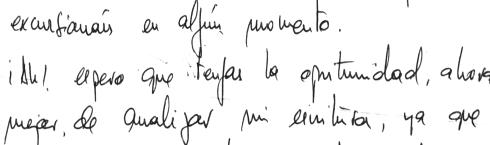 excursionáis en algún momento.
¡Ah! espero que tengas la oportunidad, ahora
mejor, de analizar mi escritura, ya que